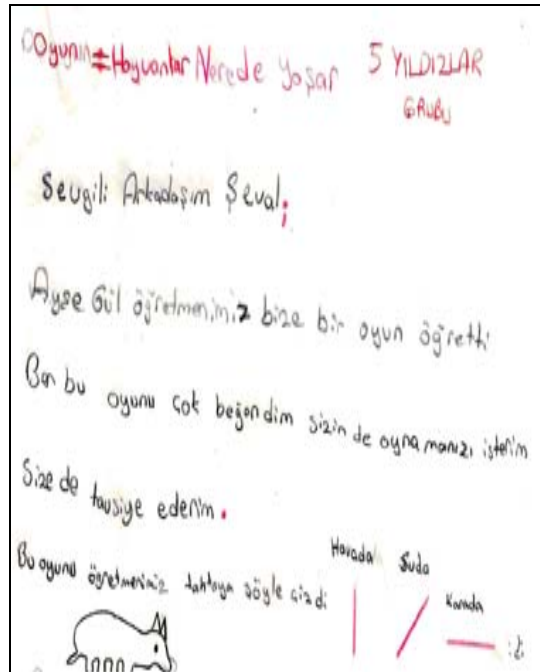 Oyunun≠Hayvanlar Nerede Yaşar 5 YILDIZLAR
GRUBU
Sevgili Arkadaşım Şeval;
Ayşe Gül öğretmenimiz bize bir oyun öğretti
Ben bu oyunu çok beğendim sizin de oynamanızı isterim
Size de tavsiye ederim.
Bu oyunu öğretmenimiz tahtaya şöyle çizdi
Havada Suda Karada